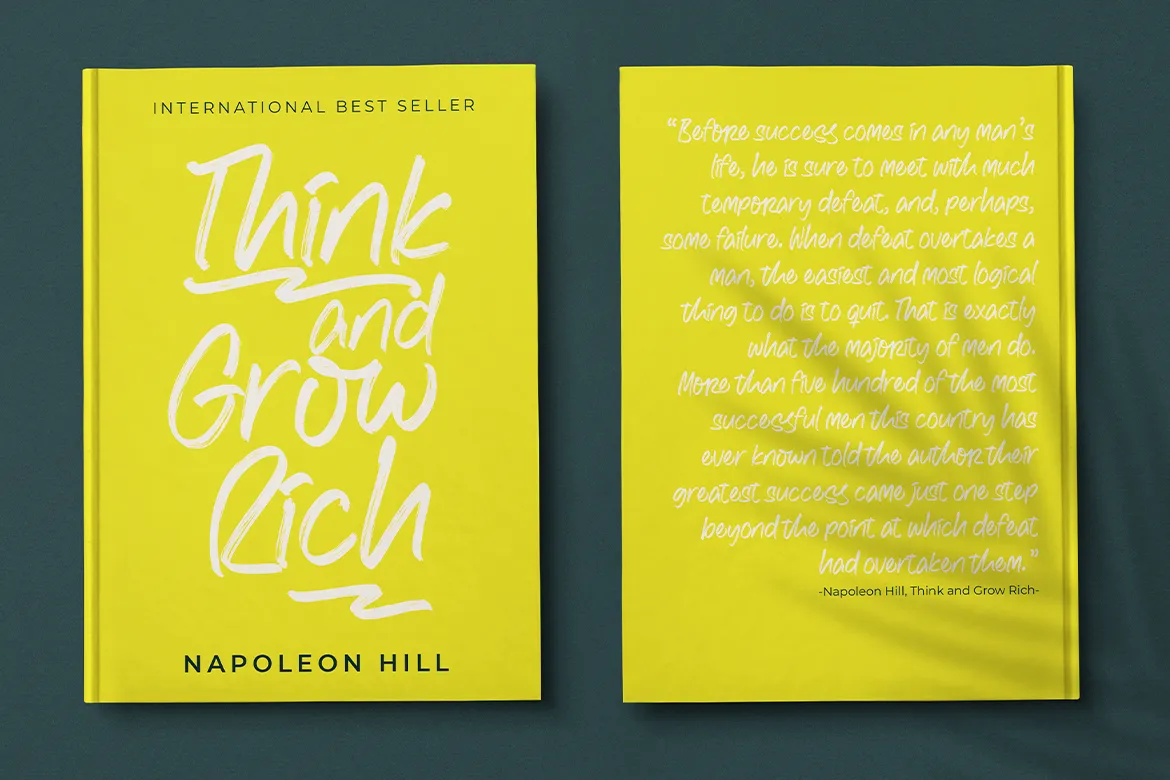 INTERNATIONAL BEST SELLER
Think
and
Grow
Rich
NAPOLEON HILL
“Before success comes in any man’s
life, he is sure to meet with much
temporary defeat, and, perhaps,
some failure. When defeat overtakes a
man, the easiest and most logical
thing to do is to quit. That is exactly
what the majority of men do.
More than five hundred of the most
successful men this country has
ever known told the author their
greatest success came just one step
beyond the point at which defeat
had overtaken them.”
-Napoleon Hill, Think and Grow Rich-